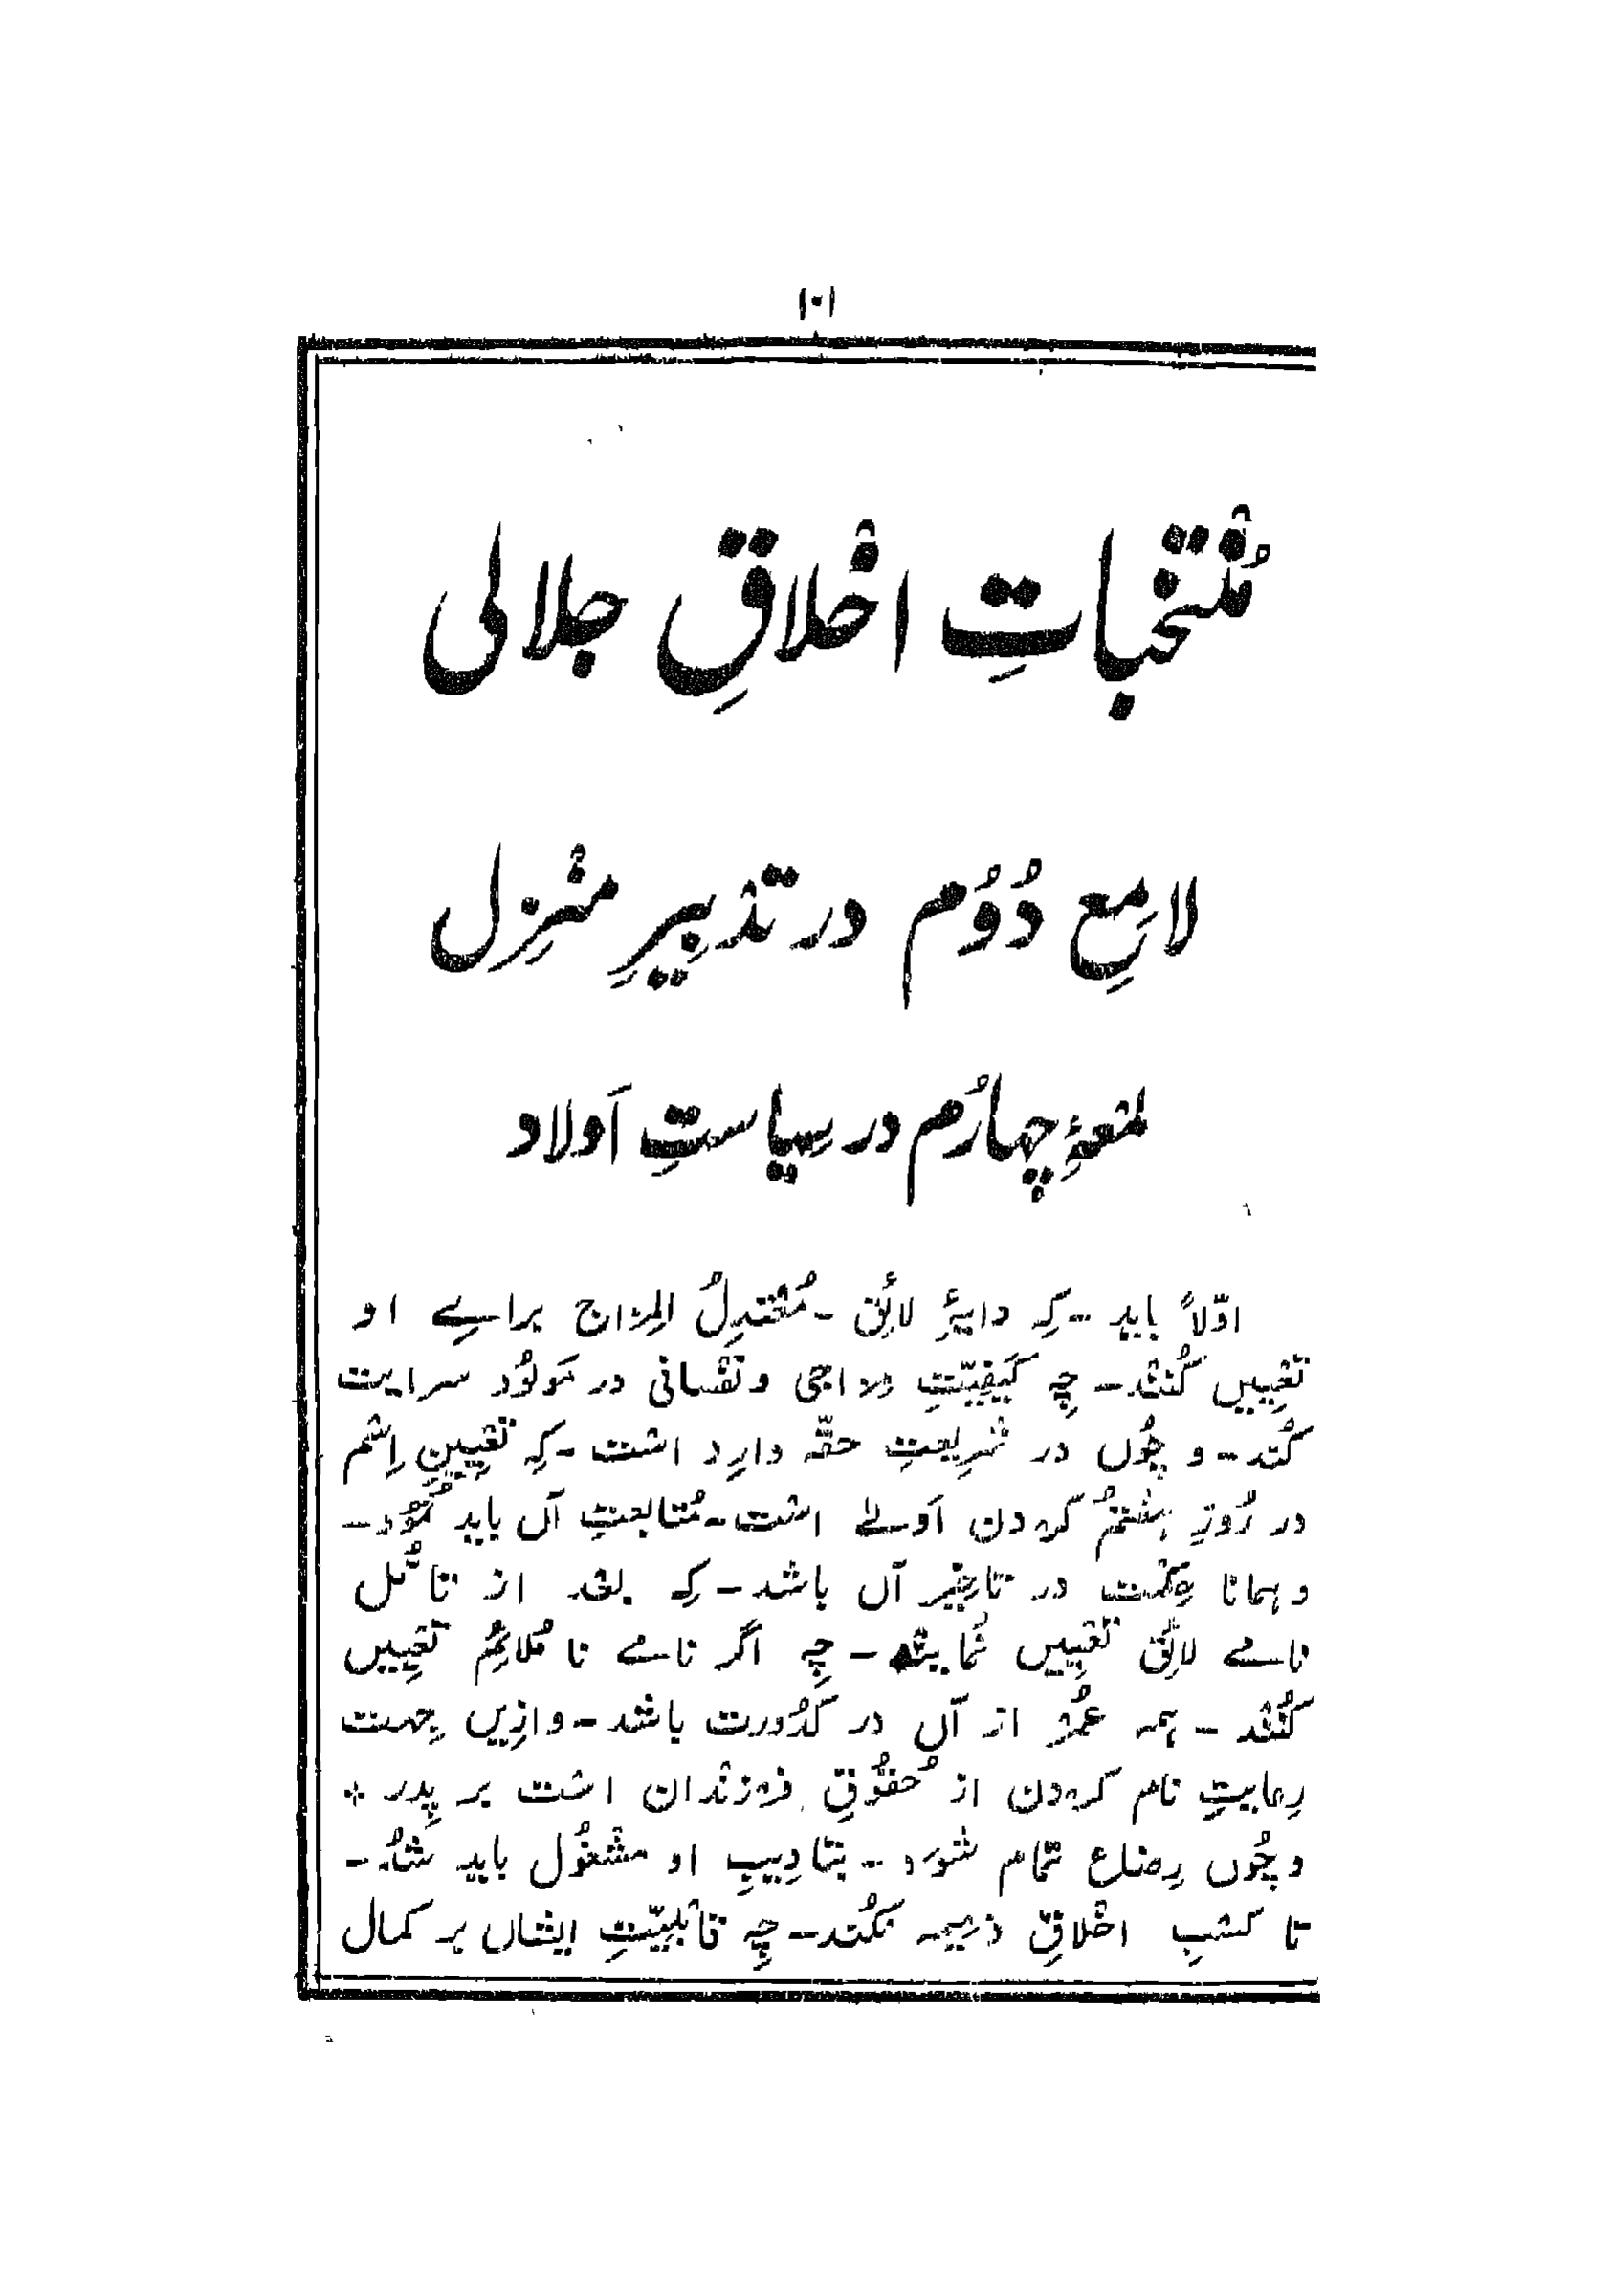 ۱۰۱
مُنْتَخَباتِ اخْلاقِ جلالی
لامِعِ دُوُم در تدْبِیرِ منْزِل
لمْعۂِ چہارُم در سِیاستِ اَولاد
اوّلاً باید - کِہ دایۂِ لائِق - مُعْتدِلُ المِزاج براے او
تعْیِیں کُنَنْد - چِہ کَیفِیّتِ مِزاجی و نفْسانی در مَولُود سرایت
کُند - و چُوں در شرِیعتِ حقّہ وارِد اسْت - کِہ تعْیِینِ اِسْم
در رُوزِ ہفْتُم کردن اَولےٰ اسْت - مُتابعتِ آں باید نمُود -
و ہمانا حِکْمت در تاخِیر آں باشد - کِہ بعْد از تامُّل
نامے لائِق تعْیِیں نُمایند - چِہ اگر نامے نا مُلائِم تعْیِیں
کُنَنْد - ہمہ عُمْر از آں در کدُورت باشد - و ازِیں جِہت
رِعایتِ نام کردن از حُقُوقِ فرزنْدان اسْت بر پِدر +
و چُوں رِضاع تمام شَوَد - بتادِیبِ او مشْغُول باید شُد -
تا کسْبِ اخْلاقِ ذمِیمہ نکُند - چِہ قابْلِیّتِ ایشاں بر کمال